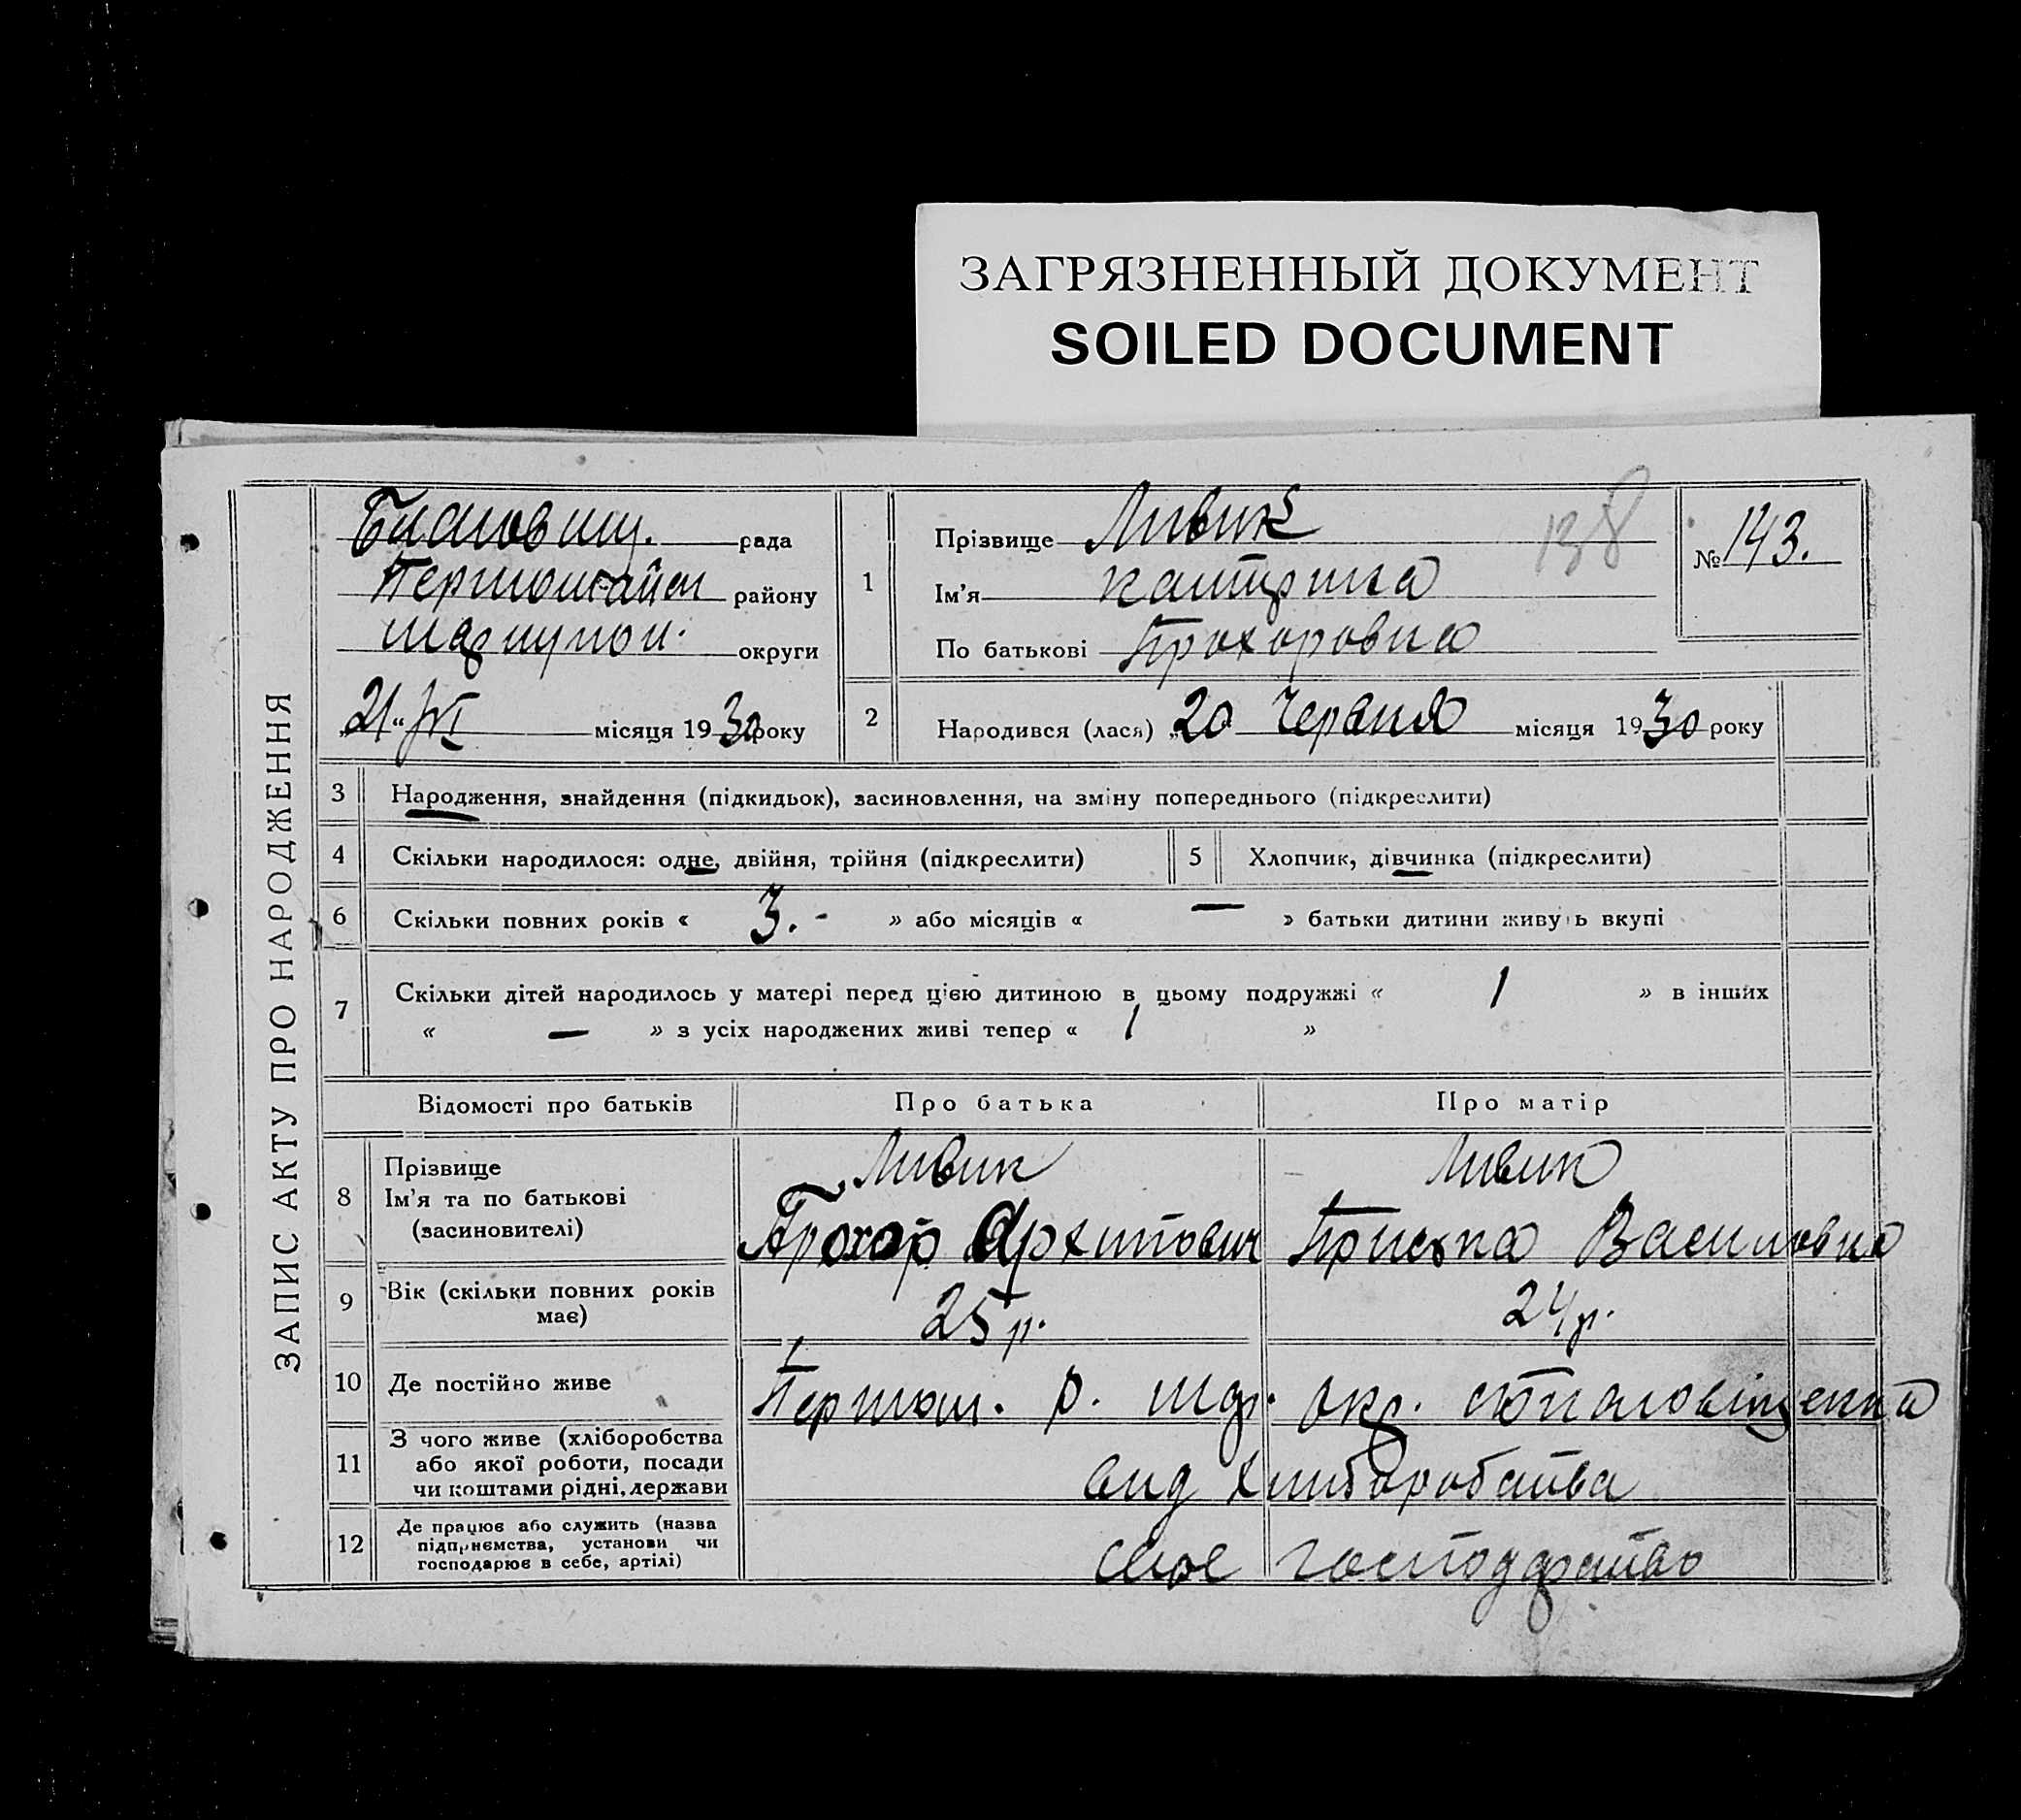 ЗАГРЯЗНЕННЫЙ ДОКУМЕНТ
SOILED DOCUMENT
ЗАПИС АКТУ ПРО НАРОДЖЕННЯ
рада
району
округи
„21“ VI місяця 1930 року
1
Прізвище Ливик
138
№ 143.
Ім'я Катрина
По батькові Прохоровна
2 Народився (лася) „20 Червня місяця 1930 року
3 Народження, знайдення (підкидьок), засиновлення, на зміну попереднього (підкреслити)
4 Скільки народилося: одне, двійня, трійня (підкреслити)
5 Хлопчик, дівчинка (підкреслити)
6 Скільки повних років « 3. - » або місяців « — » батьки дитини живуть вкупі
7 Скільки дітей народилось у матері перед цією дитиною в цьому подружжі « 1 » в інших
« — » з усіх народжених живі тепер « 1 »
Відомості про батьків
Про батька
Про матір
8 Прізвище
Ім'я та по батькові
(засиновителі)
Ливик
Прохор Архипович
Ливик
Приська Василовна
9 Вік (скільки повних років
має)
25 р.
24 р.
10 Де постійно живе
Першом. р. Мар. окр.
11 З чого живе (хліборобства
або якої роботи, посади
чи коштами рідні, держави
вид хлиборобства
12 Де працює або служить (назва
підприємства, установи чи
господарює в себе, артілі)
своє господарство